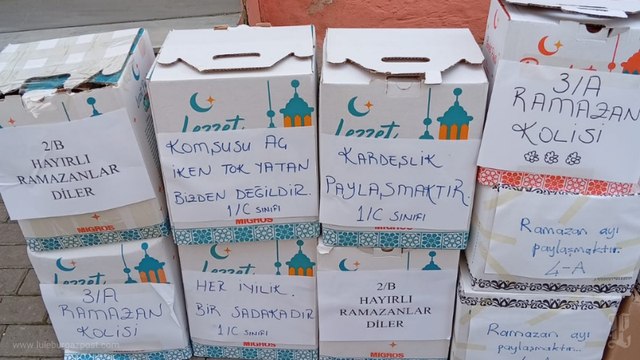 2/B
HAYIRLI
RAMAZANLAR
DİLER
Lezzet
KOMŞUSU AÇ
İKEN TOK YATAN
BİZDEN DEĞİLDİR.
1/C SINIFI
MIGROS
Lezzet
KARDEŞLİK
PAYLAŞMAKTIR.
1/C SINIFI
MIGROS
3/A
RAMAZAN
KOLİSİ
Lezzet
3/A
RAMAZAN
KOLİSİ
Lezzet
HER İYİLİK
BİR SADAKADIR
1/C SINIFI
2/B
HAYIRLI
RAMAZANLAR
DİLER
MIGROS
Ramazan ayı
paylaşmaktır.
4-A
Ramazan ayı
paylaşmaktır.
www.luleburgazpost.com